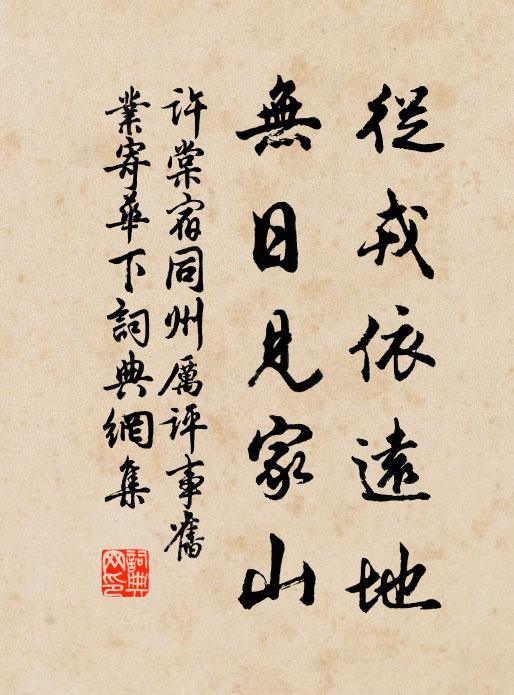 從戎依遠地
無日見家山
許棠宿同州厲評事舊
業寄華下詞典網集
詞典
网印